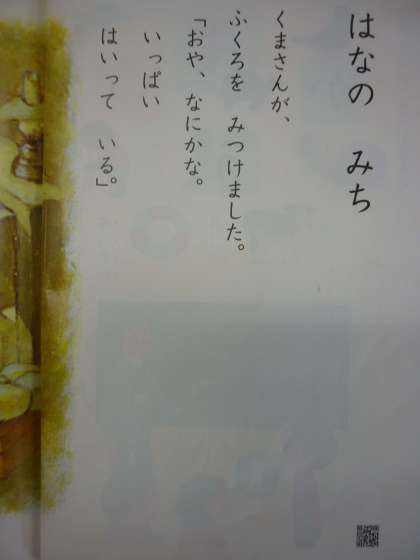 はなの　みち
くまさんが、
ふくろを　みつけました。
「おや、なにかな。
いっぱい
はいって　いる。」